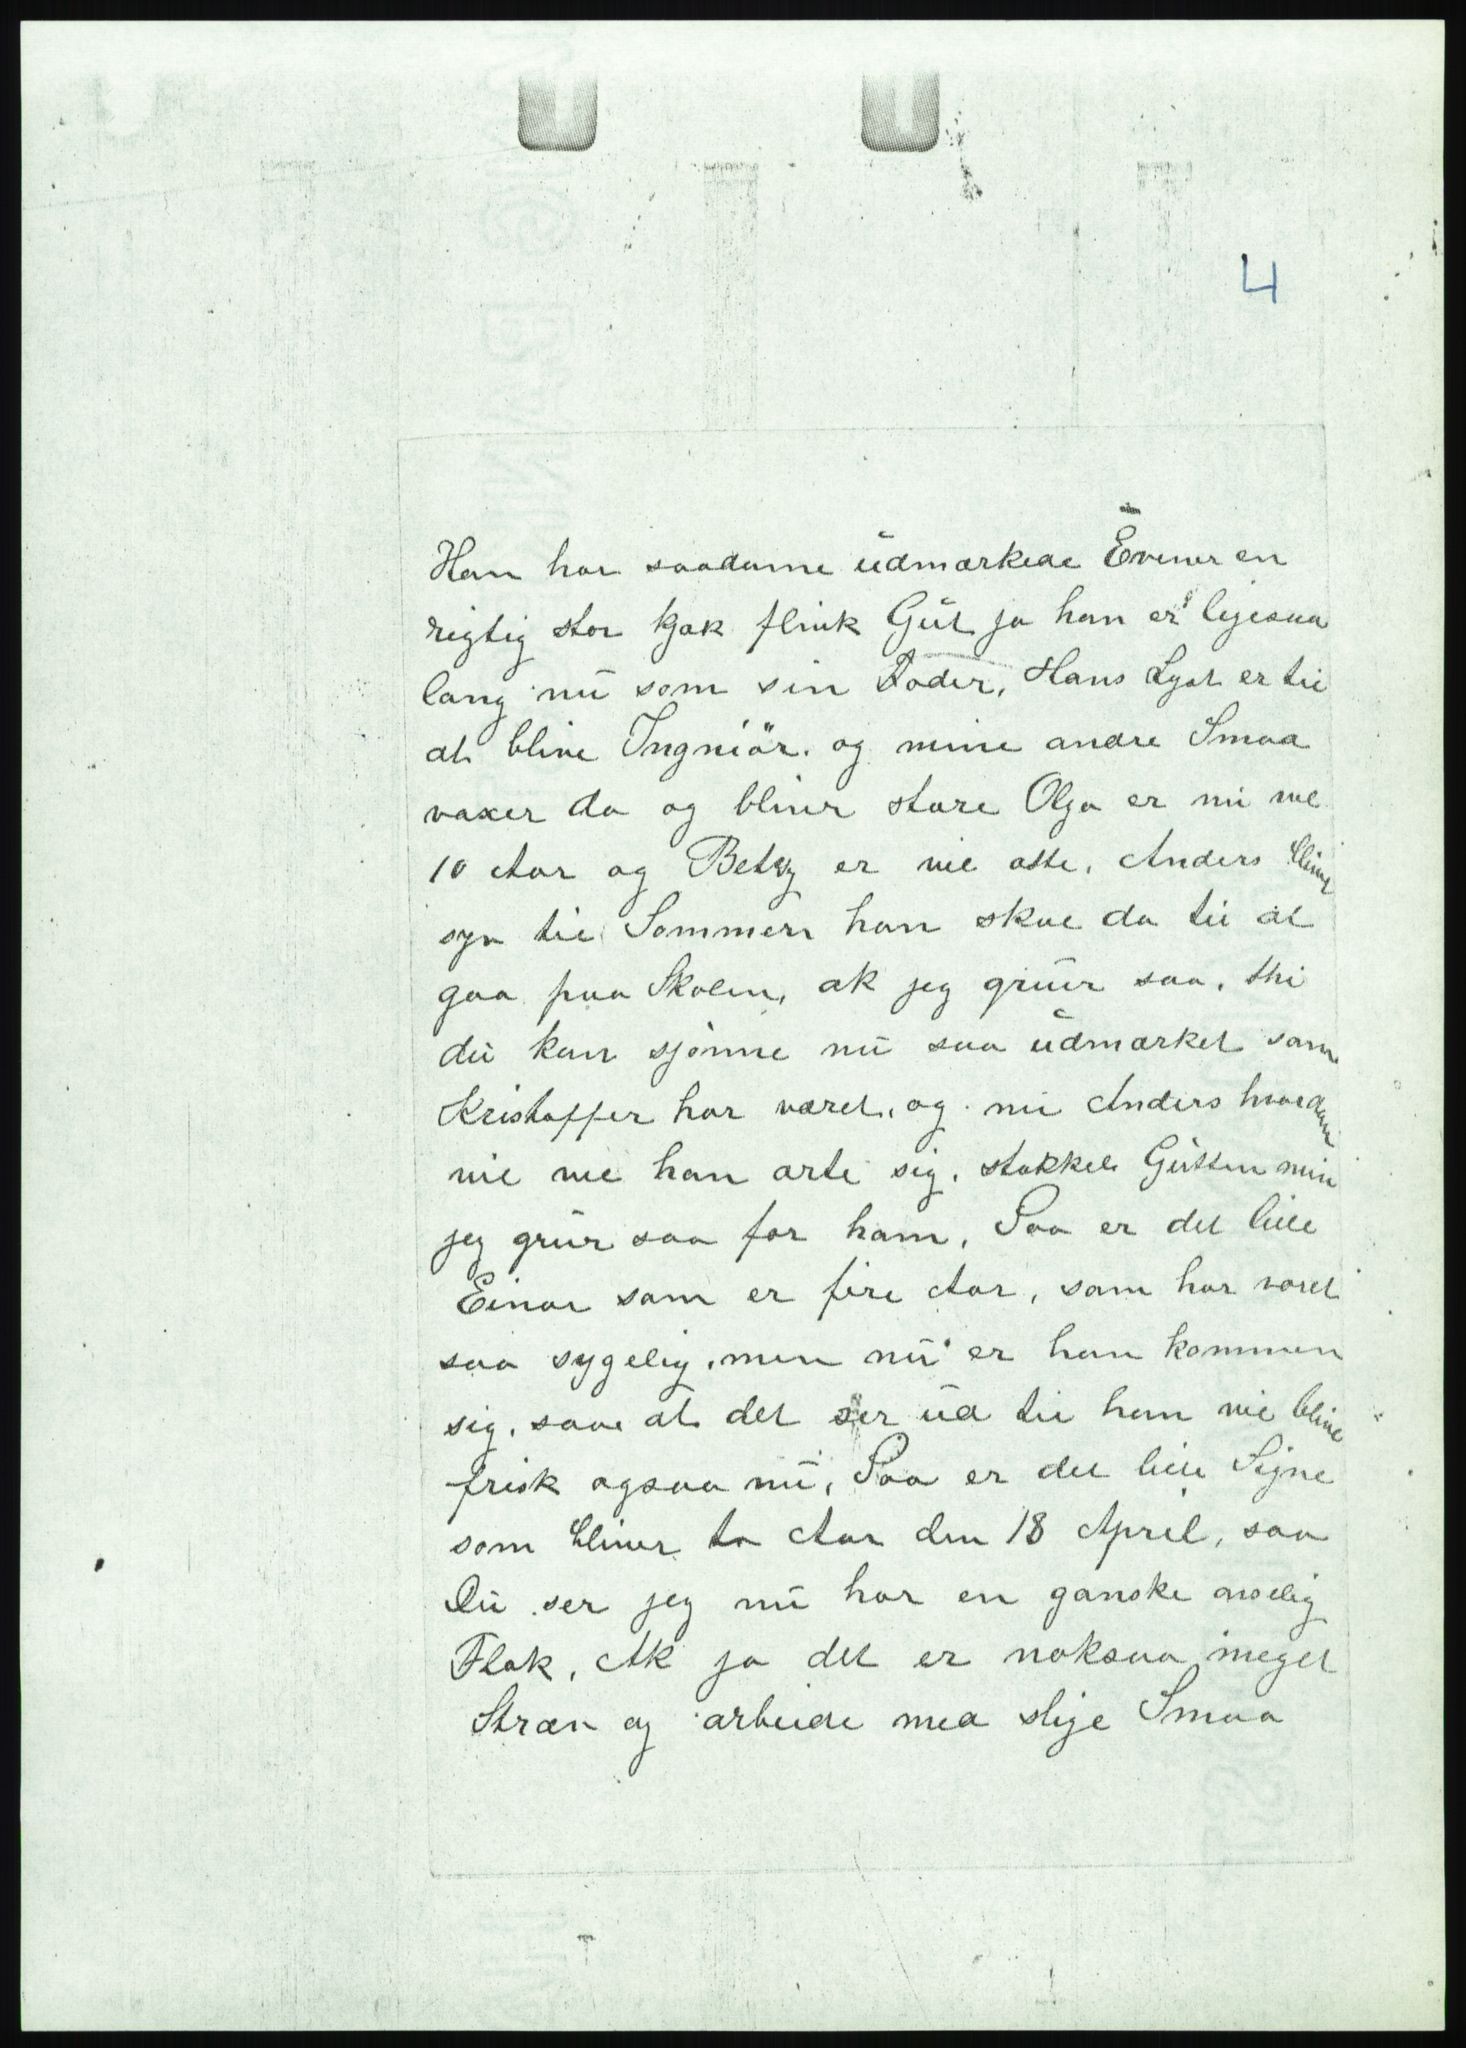 4
Han har saadanne üdmærkede Evener en
rigtig stor kjæk flink Güt ja han er ligesaa
lang nü som sin Fader, Hans Lyst er til
at blive Ingniör. og mine andre Smaa
vaxer da og bliver store Olga er nü vel
10 Aar og Betzy er vel otte. Anders bliver
syv til Sommern han skal da til at
gaa paa Skolen, ak jeg grüer saa, thi
dü kan sjønne nü saa üdmærket som
Kristoffer har været, og nü Anders hvordan
vil vel han arte sig. stakkels Gütten min
jeg grür saa for ham, Saa er det lille
Einar som er fire Aar, som har været
saa sygelig, men nü er han kommen
sig, saa at det ser üd til han vil blive
frisk ogsaa nü, Saa er det lille Signe
som bliver to Aar den 18 April, saa
Dü ser jeg nü har en ganske anselig
Flok, Ak ja det er noksaa meget
Stræv og arbeide med slige Smaa